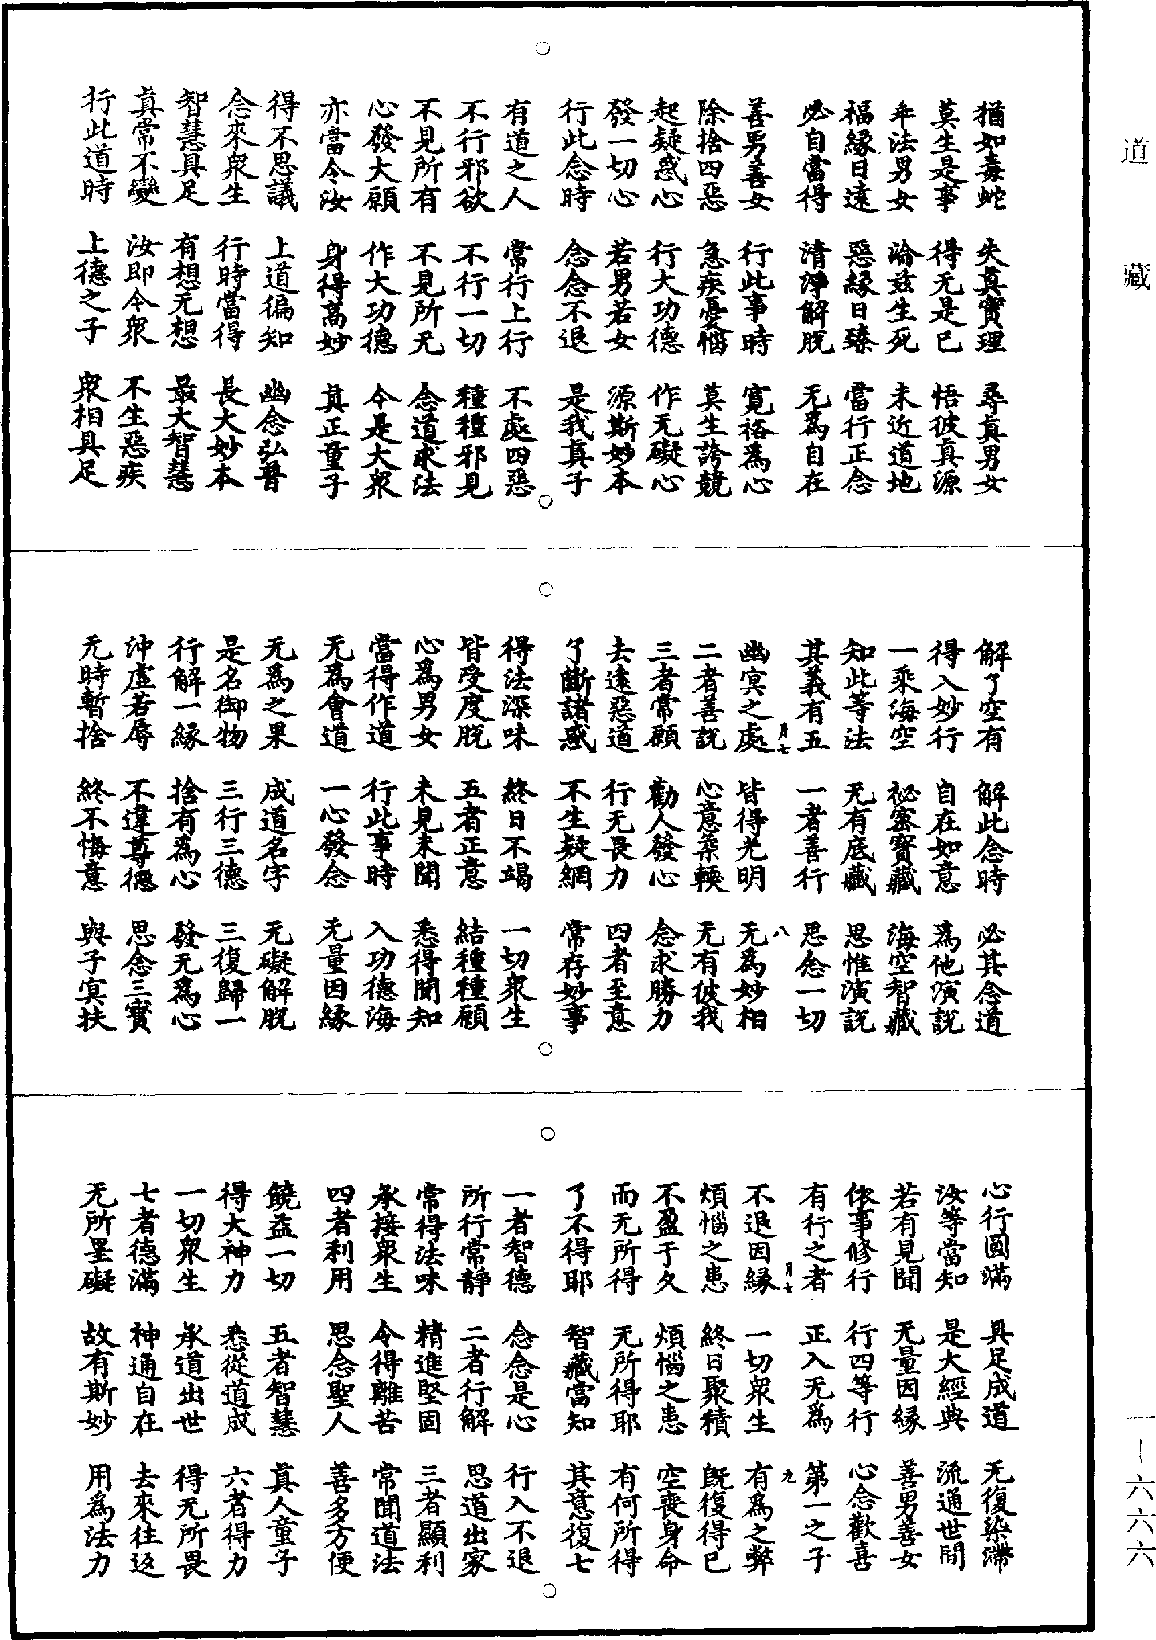 道藏
猶如毒蛇 失真實理 尋真男女
莫生是事 得无是已 悟彼真源
年法男女 淪茲生死 未近道地
福緣日遠 惡緣日臻 當行正念
必自當得 清淨解脫 无為自在
善男善女 行此事時 寬裕為心
除捨四惡 急疾憂惱 莫生誇競
起疑惑心 行大功德 作无礙心
發一切心 若男若女 源斯妙本
行此念時 念念不退 是我真子
有道之人 常行上行 不處四惡
不行邪欲 不行一切 種種邪見
不見所有 不見所无 念道求法
心發大願 作大功德 今是大衆
亦當令汝 身得高妙 真正童子
得不思議 上道徧知 幽念弘普
念來衆生 行時當得 長大妙本
智慧具足 有想无想 最大智慧
真常不變 汝即今衆 不生惡疾
行此道時 上德之子 衆相具足
解了空有 解此念時 必其念道
得入妙行 自在如意 為他演說
一乘海空 祕密寶藏 海空智藏
知此等法 无有底藏 思惟演說
其義有五 一者善行 思念一切
月七 八
幽冥之處 皆得光明 无為妙相
二者善說 心意柔輭 无有彼我
三者常願 勸人發心 念求勝力
去遠惡道 行无畏力 四者至意
了斷諸惑 不生疑網 常存妙事
得法深味 終日不竭 一切衆生
皆受度脫 五者正意 結種種願
心為男女 未見未聞 悉得聞知
當得作道 行此事時 入功德海
无為會道 一心發念 无量因緣
无為之果 成道名字 无礙解脫
是名御物 三行三德 三復歸一
行解一緣 捨有為心 發无為心
沖虛若辱 不違尊德 思念三寳
无時暫捨 終不悔意 與子冥扶
心行圓滿 具足成道 无復染滯
汝等當知 是大經典 流通世間
若有見聞 无量因緣 善男善女
依事修行 行四等行 心念歡喜
有行之者 正入无為 第一之子
月七 九
不退因緣 一切衆生 有為之弊
煩惱之患 終日聚積 旣復得已
不盈于久 煩惱之患 空喪身命
而无所得 无所得耶 有何所得
了不得耶 智藏當知 其意復七
一者智德 念念是心 行入不退
所行常靜 二者行解 思道出家
常得法味 精進堅固 三者顯利
承接衆生 令得離苦 常聞道法
四者利用 思念聖人 善多方便
饒益一切 五者智慧 真人童子
得大神力 悉從道成 六者得力
一切衆生 承道出世 得无所畏
七者德滿 神通自在 去來往返
无所罣礙 故有斯妙 用為法力
一—六六六